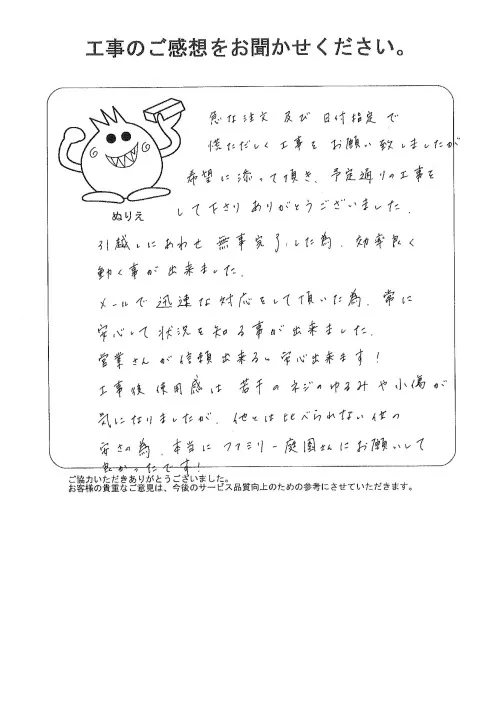 工事のご感想をお聞かせください。
急な注文 及び 日付指定で
慌ただしく工事をお願い致しましたが
希望に添って頂き、予定通りの工事を
して下さりありがとうございました。
ぬりえ
引越しにあわせ無事完了した為、効率良く
動く事が出来ました。
メールで迅速な対応をして頂いた為、常に
安心して状況を知る事が出来ました。
営業さんが信頼出来るい安心出来ます!
工事後使用感は若干のネジのゆるみや小傷が
気になりましたが、他とは比べられない位の
安さの為、本当にファミリー庭園さんにお願いして
良かったです!
ご協力いただきありがとうございました。
お客様の貴重なご意見は、今後のサービス品質向上のための参考にさせていただきます。